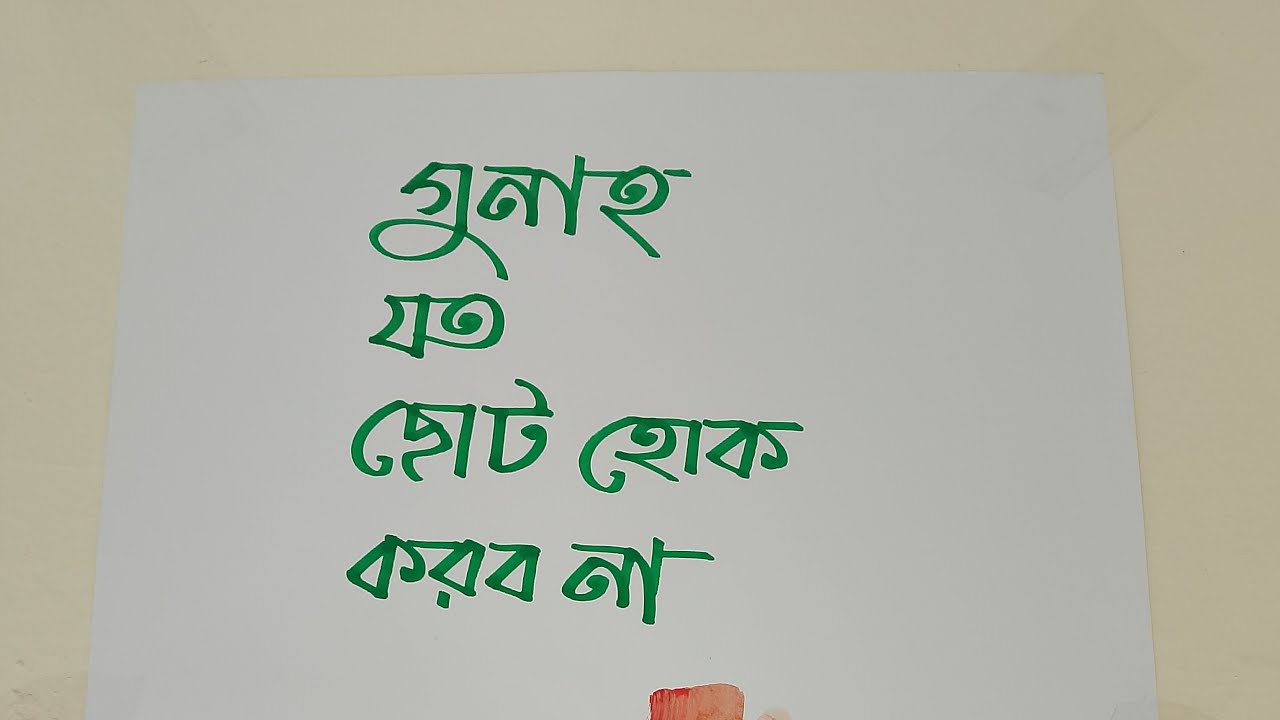 গুনাহ
যত
ছোট হোক
করব না